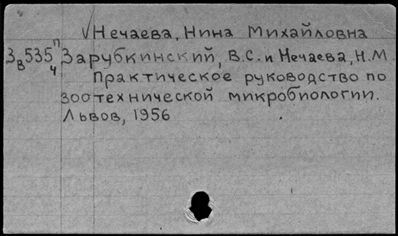 √Нечаева, Нина Михайловна
3в535п/ч Зарубкинский, В.С. и Нечаева, Н.М.
Практическое руководство по
зоотехнической микробиологии.
Львов, 1956